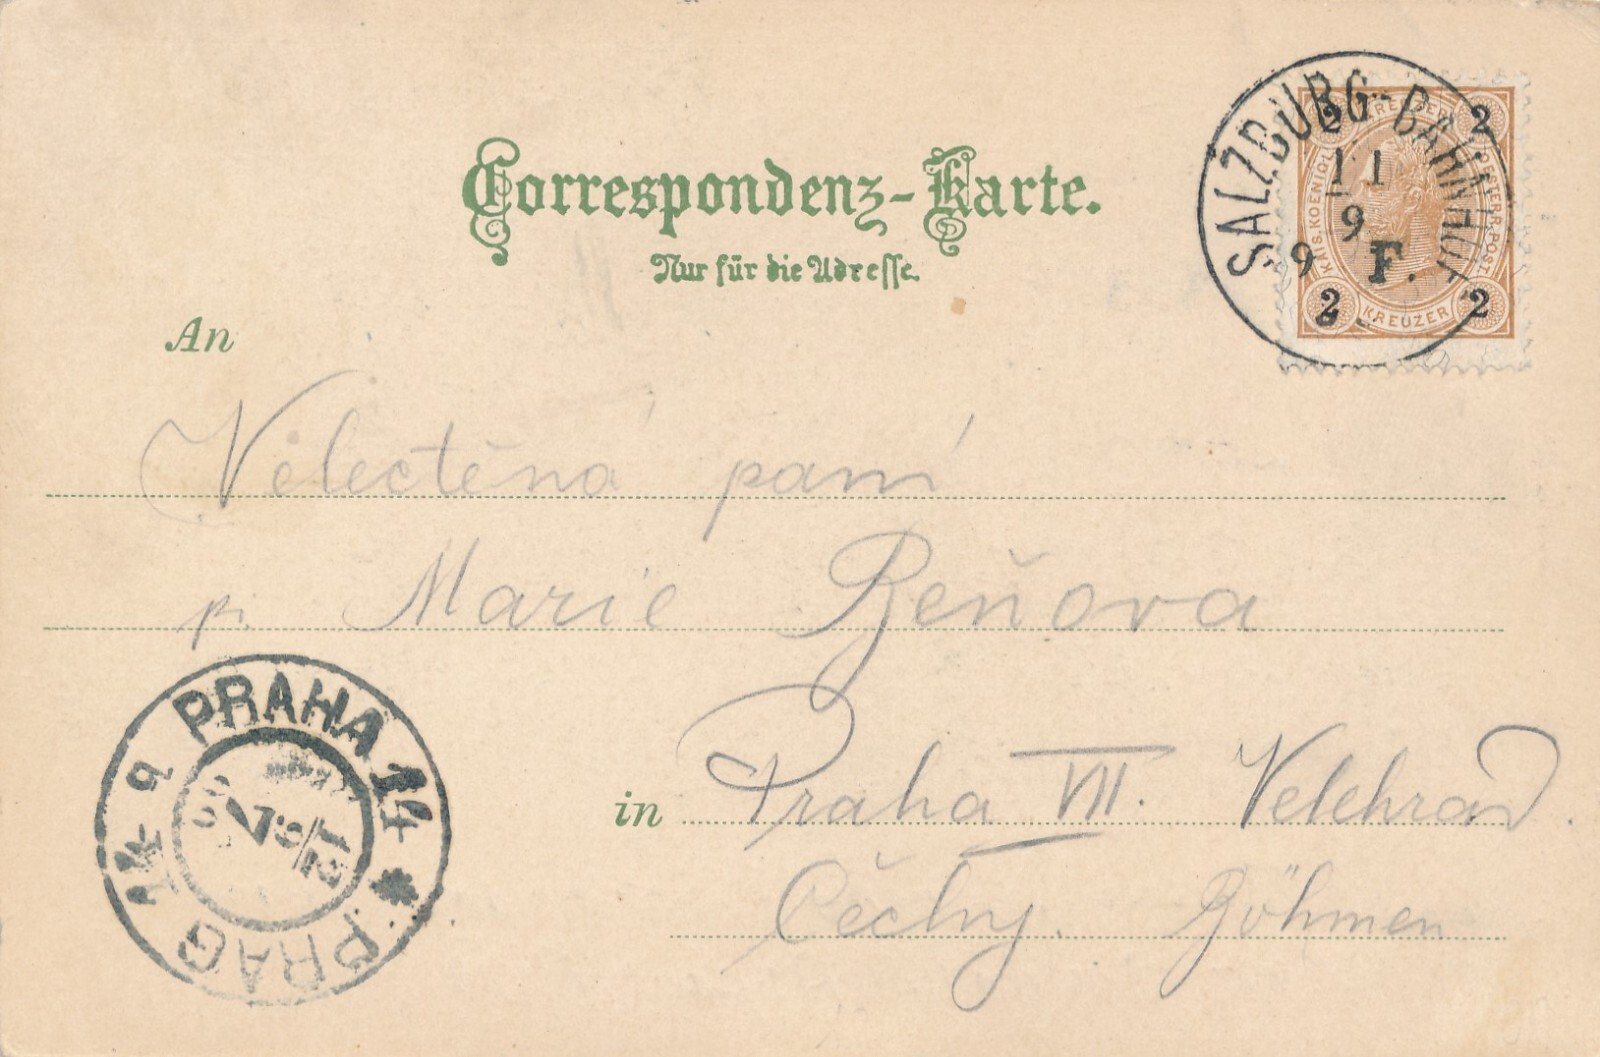 Correspondenz-Karte.
Nur für die Adresse.
SALZBURG-BAHNHOF.
11
9
9 F.
2 2
KREUZER
KAIS. KOENIGL. OESTERR. POST.
2 KREUZER 2
An
Velectěná paní
p. Marie Beňova
in Praha VII. Velehrad.
Čechy. Böhmen
PRAHA 14
PRAG
12/9